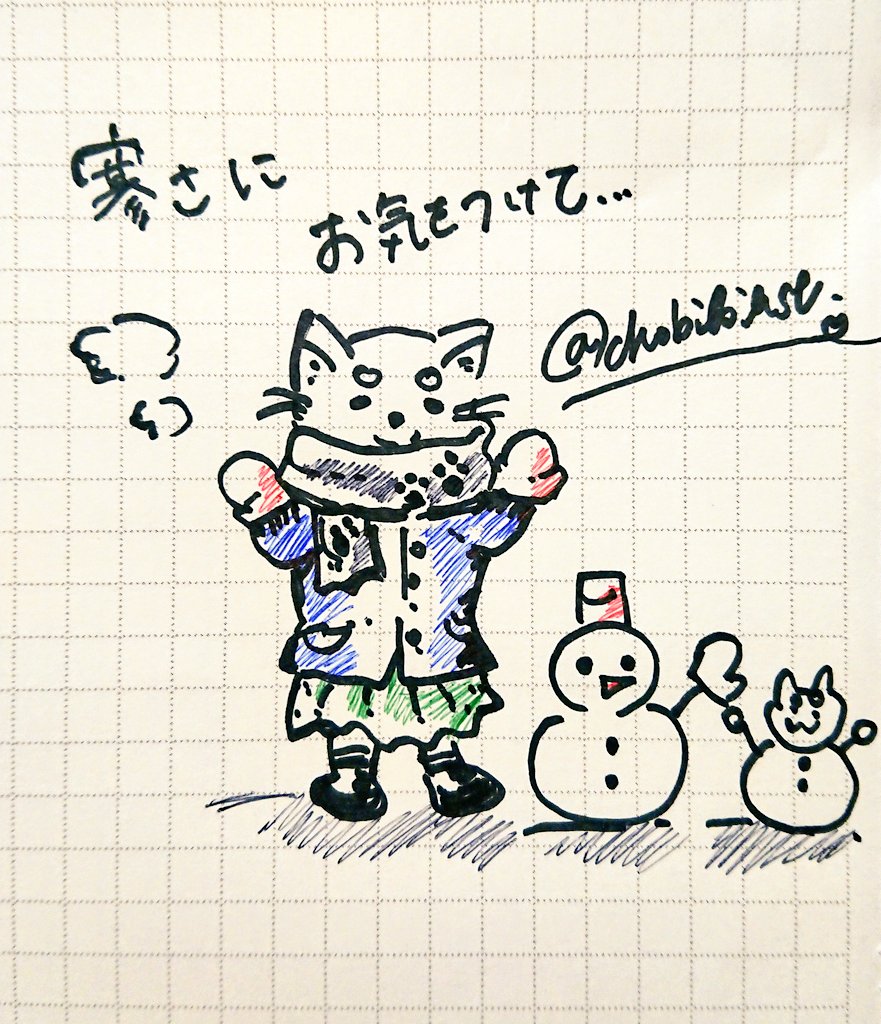 寒さに
お気をつけて...